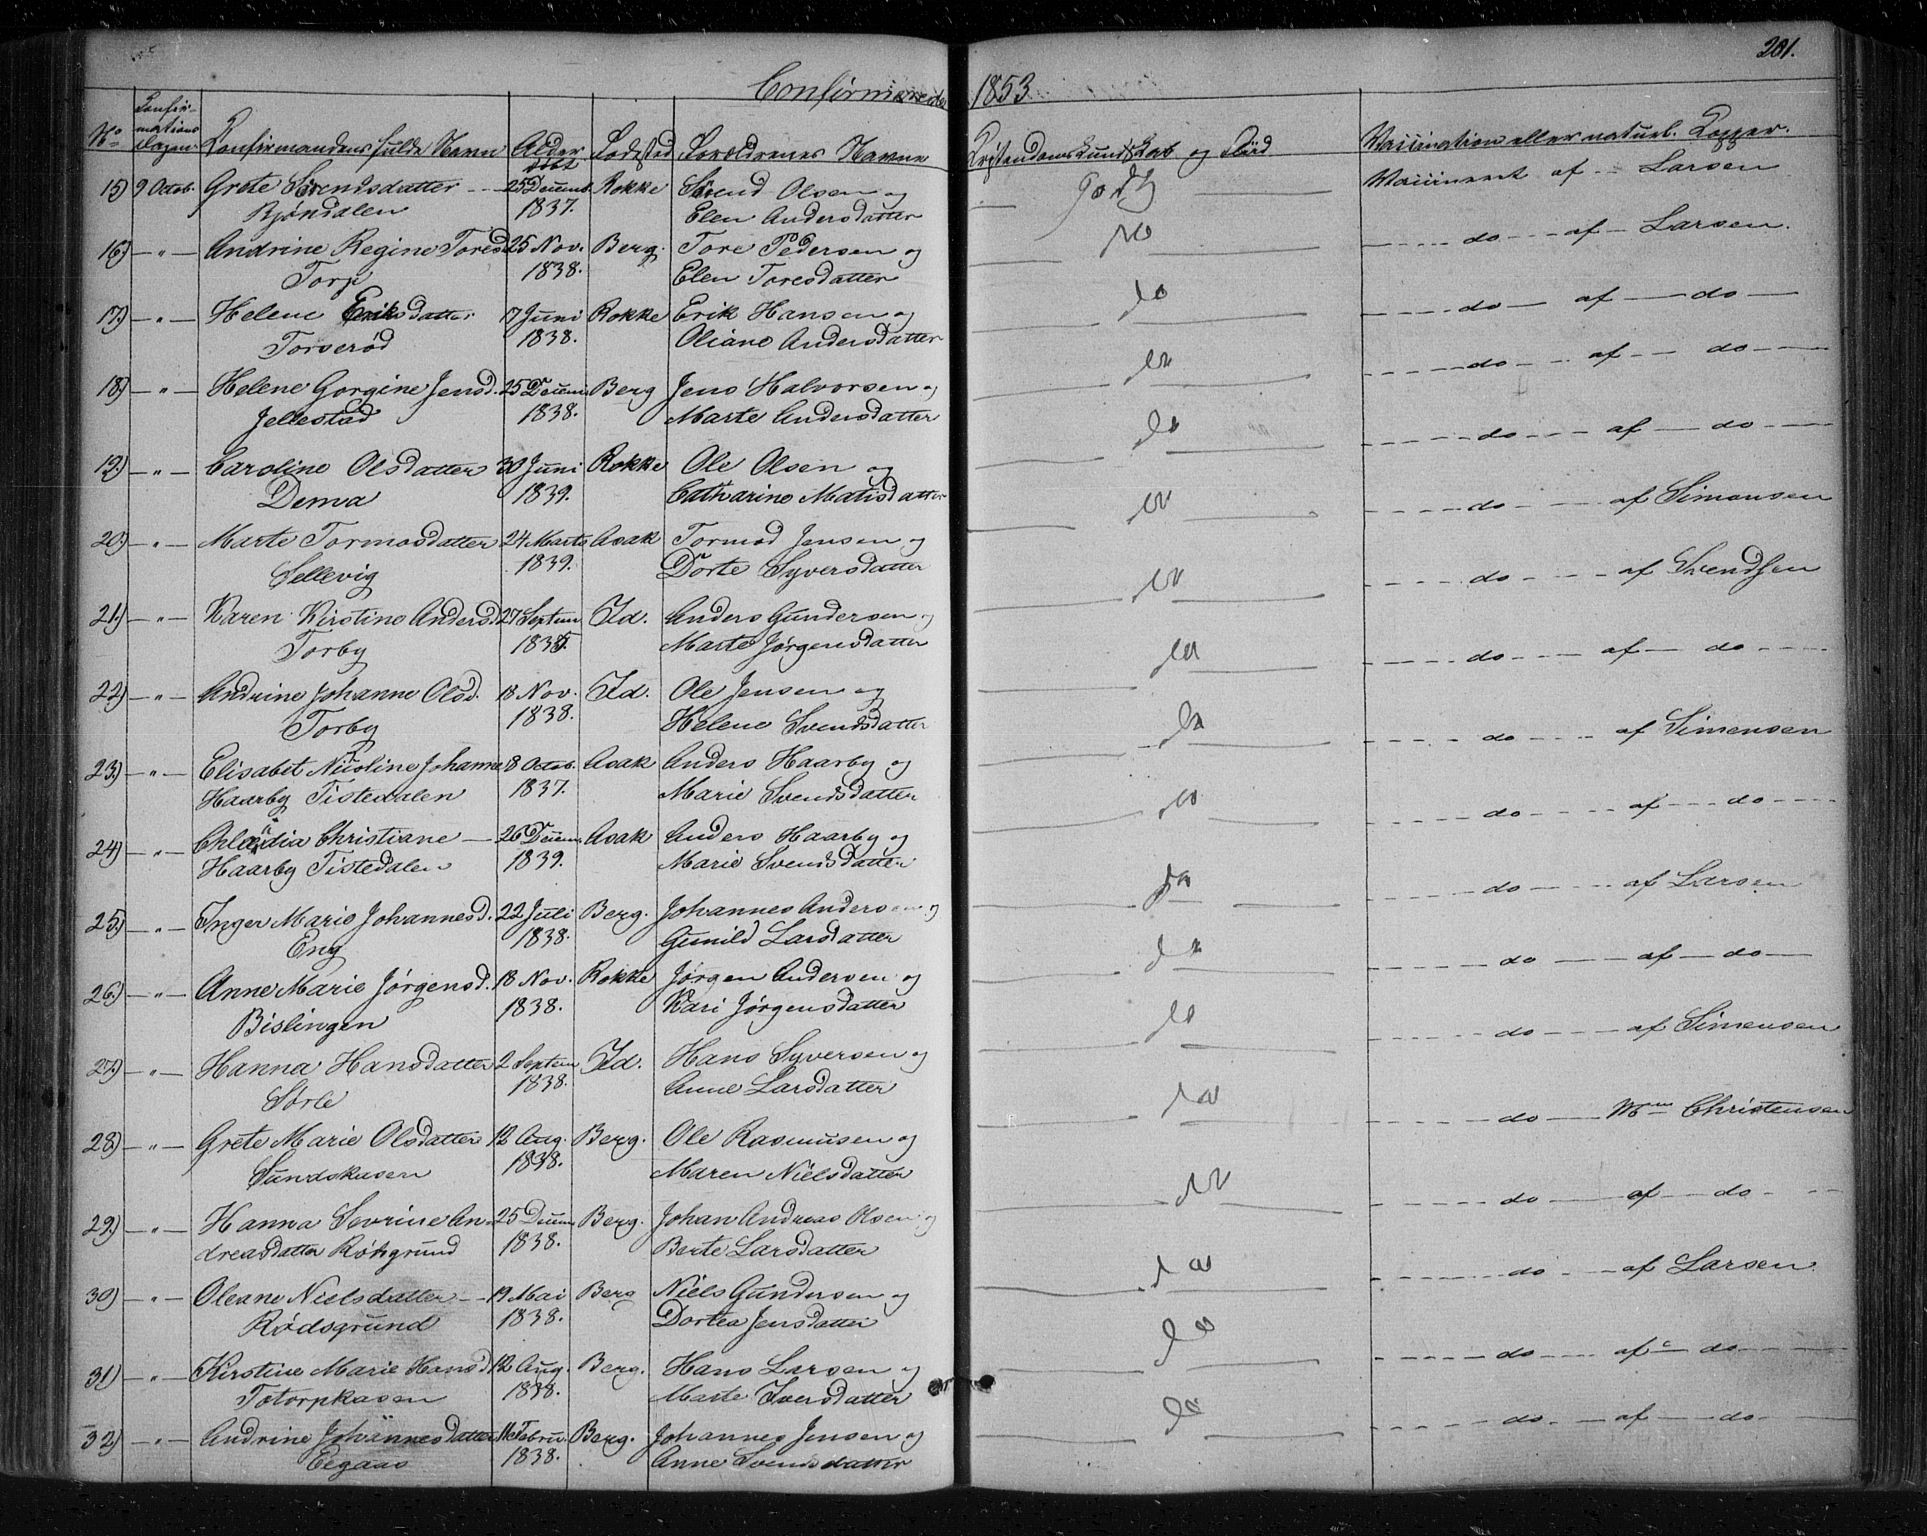 201.
Confirmerede 1853
No Confirmations Dagen Konfirmandens fulde Navn Alder Födested Foreldrenes Navne Kristendoms Kundskab og Flid Vaccination eller naturl. Kopper.
15) 9 Octob. Grete Svendsdatter 25 Decemb. Rokke Svend Olsen og Godt Vaccineret af Larsen
Bjöndalen 1837. Elen Andersdatter
16) " Andrine Regine Toresd. 25 Nov. Berg. Tore Pedersen og do do af Larsen.
Torp 1838. Elen Toresdatter
17) " Helene Eriksdatter 17 Juni Rokke Erik Hansen og do do af do
Torseröd 1838. Oliane Andersdatter
18) " Helene Gorgine Jensd. 25 Decem Berg Jens Halvorsen og do do af do
Jellestad 1838. Marte Andersdatter
19.) " Caroline Olsdatter 30 Juni Rokke Ole Olsen og do do af do
Dema 1839. Catharine Matisdatter
20) " Marte Tormosdatter 24 Marts Asak Tormod Jensen og do do af Simonsen
Sellevig 1839. Dorte Syversdatter
21.) " Karen Kirstine Andersd 27 Septem Id. Anders Gundersen og do do af Svendsen
Torby Marte Jørgensdatter
22) " Andrine Johanne Olsd. 18 Nov. Id. Ole Jensen og do do af do
Torby 1838. Helene Svendsdatter
23) " Elisabet Nicoline Johanne 8 Octob. Asak Anders Haarby og do do af Simensen
Haarby Tistedalen 1837. Marie Svendsdatter
24) " Chlaudia Christiane 26 Decem. Asak Anders Haarby og do do af do
Haarby Tistedalen 1839. Marie Svendsdatter
25) " Inger Marie Johannesd. 22 Juli Berg. Johannes Andersen og do do af Larsen
Eng 1838. Gunild Larsdatter
26.) " Anne Marie Jørgensd. 18 Nov. Rokke Jørgen Andersen og do do af do
Bislingen 1838. Kari Jørgensdatter
27) " Hanna Hansdatter 2 Septem Id. Hans Syversen og do do af Simensen
Sørle 1838. Anne Larsdatter
28) " Grete Marie Olsdatter 12 Aug. Berg. Ole Rasmusen og do do Christensen
Sundskasen 1838. Maren Nielsdatter
29.) " Hanna Sevrine An- 25 Decem Berg. Johan Andreas Olsen og do do af do
dreasdatter Rødsgrund 1838. Berte Larsdatter
30) " Oleane Nielsdatter 19 Mai Berg Niels Gundersen og do do af Larsen
Rødsgrund 1838. Dortea Jensdatter
31) " Kirstine Marie Hansd 12 Aug. Berg. Hans Larsen og do do af do
Totorpkasen 1838. Marte Iversdatter
32) " Andrine Johannesdatter 11 Febru. Berg. Johannes Jensen og do do af do
Eegaas 1838. Anne Svendsdatter